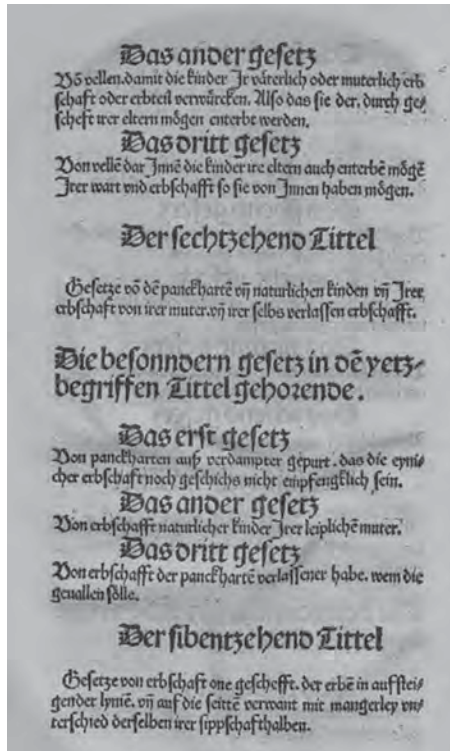 Das ander gesetz
Võ vellen. damit die kinder Jr väterlich oder muterlich erb
schaft oder erbteil verwürcken. Also das sie der. durch ges⸗
scheft irer eltern mögen enterbt werden.
Das dritt gesetz
Von vellẽ dar Jnnẽ die kinder ire eltern auch enterbẽ mögẽ
Jrer wart vnd erbschafft so sie von Jnnen haben mögen.
Der sechtzehend Tittel
Gesetze võ dẽ panckhartẽ vñ naturlichen kinden vñ Jrer
erbschaft von irer muter. vñ irer selbs verlassen erbschafft.
Die besonndern gesetz in dẽ yetz⸗
begriffen Tittel gehorende.
Das erst gesetz
Von panckharten auß verdampter gepurt. das die eyni⸗
cher erbschaft noch geschichs nicht empfengklich sein.
Das ander gesetz
Von erbschafft naturlicher kinder Jrer leiplichẽ muter.
Das dritt gesetz
Von erbschafft der panckhartẽ verlassener habe. wem die
geuallen sölle.
Der sibentzehend Tittel
Gesetze von erbschaft one geschefft. der erbẽ in aufstei⸗
gender lyniẽ. vñ auf die seittẽ verwant mit mangerley vn⸗
terschied derselben irer sippschafthalben.